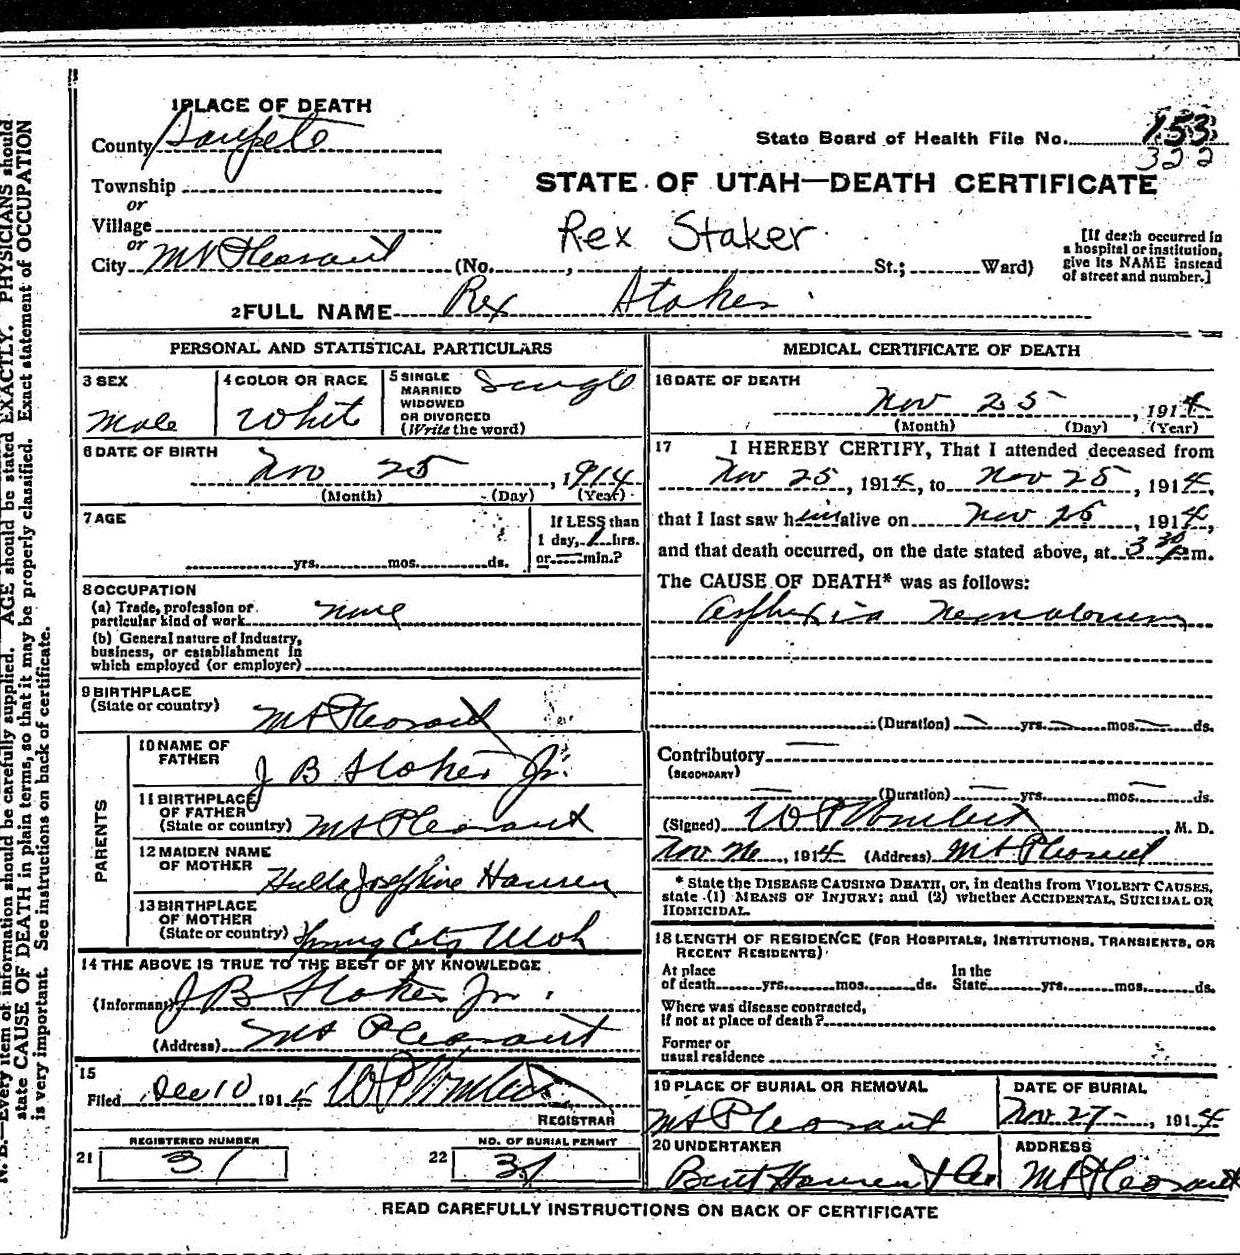 1 PLACE OF DEATH
County Sanpete
State Board of Health File No. 153
322
Township
or
STATE OF UTAH—DEATH CERTIFICATE
Village
or
Rex Staker
City Mt Pleasant (No. , St.; Ward)
[If death occurred in a hospital or institution, give its NAME instead of street and number.]
2 FULL NAME Rex Staker
PERSONAL AND STATISTICAL PARTICULARS
3 SEX
Male
4 COLOR OR RACE
Whit
5 SINGLE MARRIED WIDOWED OR DIVORCED (Write the word)
Single
6 DATE OF BIRTH
Nov 25, 1914
(Month) (Day) (Year)
7 AGE
yrs. mos. ds.
If LESS than
1 day, 1 hrs.
or — min.?
8 OCCUPATION
(a) Trade, profession or
particular kind of work none
(b) General nature of Industry,
business, or establishment in
which employed (or employer)
9 BIRTHPLACE
(State or country)
Mt Pleasant
PARENTS
10 NAME OF
FATHER
J B Staker Jr.
11 BIRTHPLACE
OF FATHER
(State or country) Mt Pleasant
12 MAIDEN NAME
OF MOTHER
Hulda Josephine Hansen
13 BIRTHPLACE
OF MOTHER
(State or country) City Utah
14 THE ABOVE IS TRUE TO THE BEST OF MY KNOWLEDGE
(Informant) J B Staker Jr.
(Address) Mt Pleasant
15
Filed Dec 10 1914
REGISTRAR
REGISTERED NUMBER
21 31
NO. OF BURIAL PERMIT
22 31
MEDICAL CERTIFICATE OF DEATH
16 DATE OF DEATH
Nov 25, 1914
(Month) (Day) (Year)
17 I HEREBY CERTIFY, That I attended deceased from
Nov 25, 1914, to Nov 25, 1914,
that I last saw him alive on Nov 25, 1914,
and that death occurred, on the date stated above, at 3 30 P m.
The CAUSE OF DEATH* was as follows:
Asphexia Neonatorum
(Duration) — yrs. — mos. — ds.
Contributory —
(SECONDARY)
(Duration) — yrs. — mos. — ds.
(Signed) , M. D.
Nov , 1914 (Address) Mt Pleasant
* State the DISEASE CAUSING DEATH, or, in deaths from VIOLENT CAUSES,
state (1) MEANS OF INJURY; and (2) whether ACCIDENTAL, SUICIDAL OR
HOMICIDAL.
18 LENGTH OF RESIDENCE (FOR HOSPITALS, INSTITUTIONS, TRANSIENTS, OR
RECENT RESIDENTS)
At place In the
of death yrs. mos. ds. State yrs. mos. ds.
Where was disease contracted,
if not at place of death?
Former or
usual residence
19 PLACE OF BURIAL OR REMOVAL
Mt Pleasant
DATE OF BURIAL
Nov 27 —, 1914
20 UNDERTAKER
Bent Hansen & Co
ADDRESS
Mt Pleasant
READ CAREFULLY INSTRUCTIONS ON BACK OF CERTIFICATE
N. B.—Every item of information should be carefully supplied. AGE should be stated EXACTLY. PHYSICIANS should
state CAUSE OF DEATH in plain terms, so that it may be properly classified. Exact statement of OCCUPATION
is very important. See instructions on back of certificate.